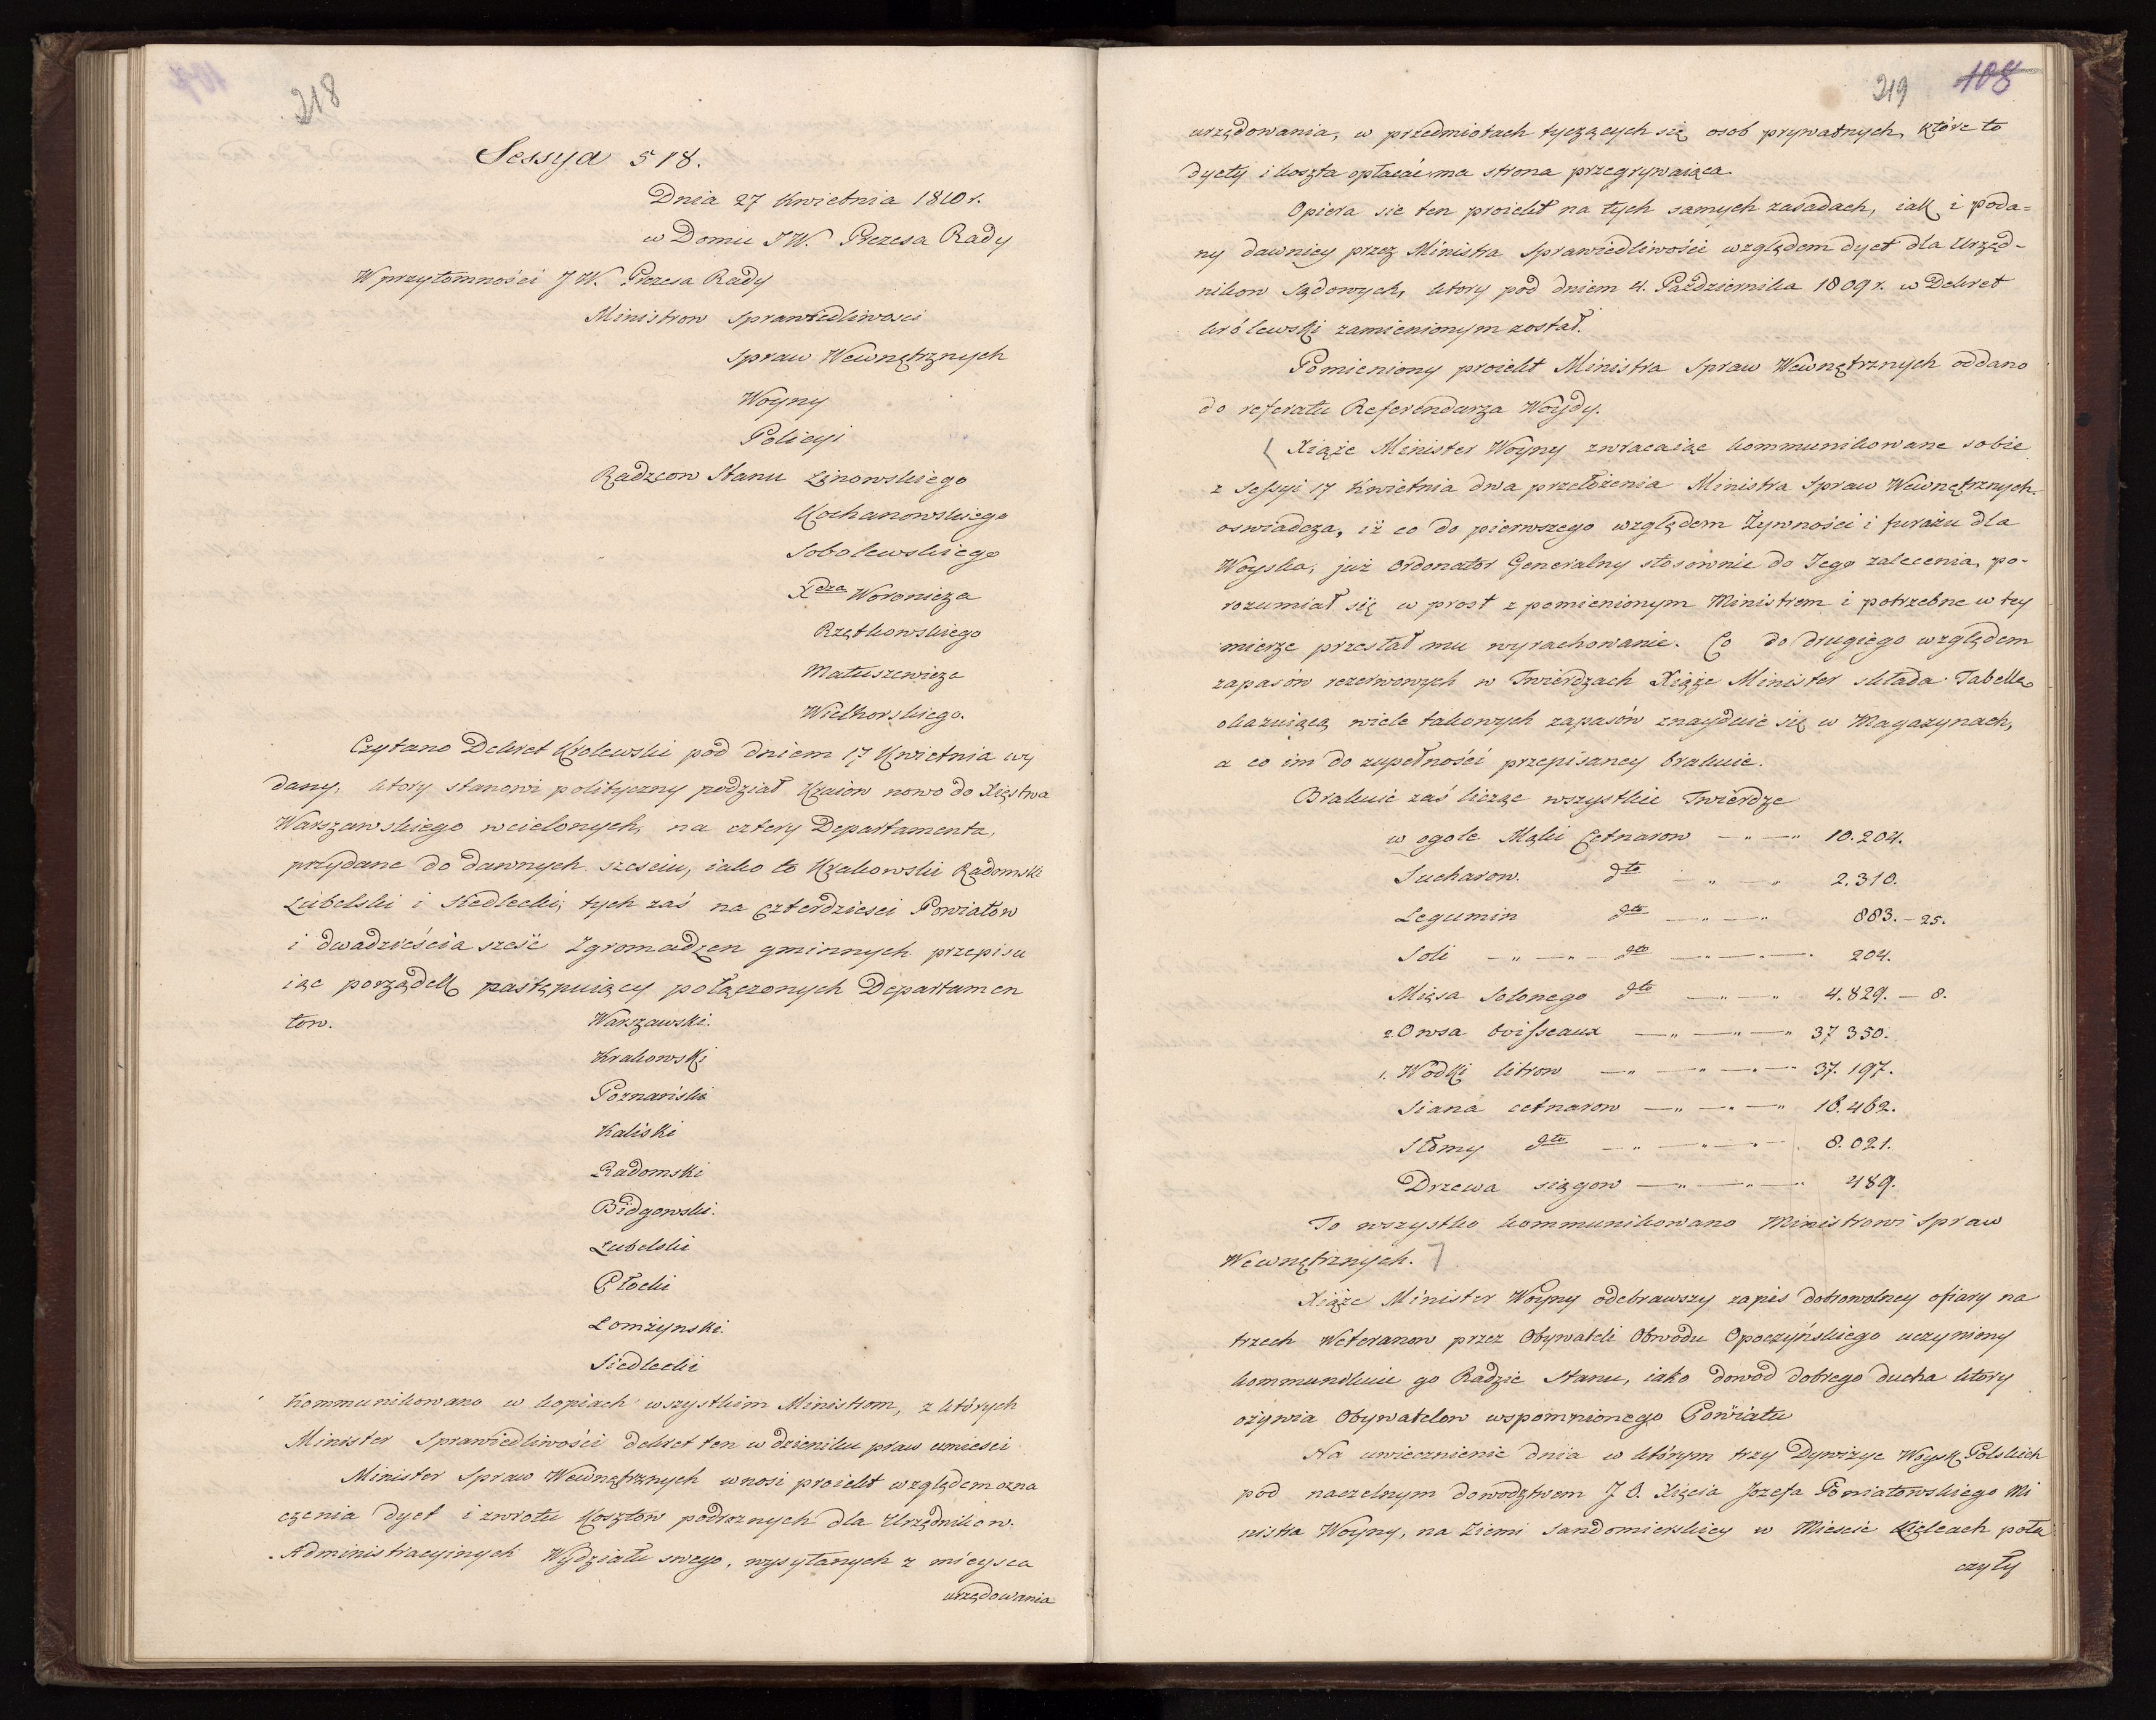 218
Sessya 518.
Dnia 27 Kwietnia 1810 r.
w Domu JW. Prezesa Rady
W przytomności JW. Prezesa Rady
Ministrow Sprawiedliwosci
Spraw Wewnętrznych
Woyny
Policyi
Radzcow Stanu Linowskiego
Kochanowskiego
Sobolewskiego
Xdza Woronicza
Rzętkowskiego
Matuszewicza
Wielhorskiego.
Czytano Dekret Krolewski pod dniem 17 Kwietnia wy
dany, ktory stanowi polityczny podział Kraiow nowo do Xięstwa
Warszawskiego wcielonych, na cztery Departamenta,
przydane do dawnych szesciu, iako to Krakowski Radomski
Lubelski i Siedlecki; tych zaś na czterdziesci Powiatow
i dwadzieścia sześć Zgromadzen gminnych przepisu
iąc porządek następuiący połączonych Departamen
tow. Warszawski.
Krakowski
Poznański
Kaliski
Radomski
Bidgowski.
Lubelski
Płocki
Lomżynski.
Siedlecki
Kommunikowano w kopiach wszystkim Ministrom, z których
Minister Sprawiedliwości dekret ten w dzieniku praw umiesci
Minister Spraw Wewnętrznych wnosi proiekt względem ozna
czenia dyet i zwrotu Kosztow podrożnych dla Urzędnikow
Administracyinych Wydziału swego, wysyłanych z mieysca
urzędowania
219 108
urzędowania, w przedmiotach tyczących się osob prywatnych, które to
dyety i koszta opłacać ma strona przegrywaiąca.
Opiera sie ten proiekt na tych samych zasadach, iak i poda=
ny dawniey przez Ministra Sprawiedliwości względem dyet dla Urzęd-
nikow Sądowych, ktory pod dniem 4. Października 1809 r. w Dekret
królewski zamienionym został.
Pomieniony proiekt Ministra Spraw Wewnętrznych oddano
do referatu Referendarza Woydy.
Xiąże Minister Woyny zwracaiąc kommunikowane sobie
z Sessyi 17 Kwietnia dwa przełożenia Ministra Spraw Wewnętrznych.
oswiadcza, iż co do pierwszego względem Żywności i furażu dla
Woyska, już Ordonator Generalny stosownie do Jego zalecenia, po-
rozumiał się w prost z pomienionym Ministrem i potrzebne w tey
mierze przesłał mu wyrachowanie. Co do drugiego względem
zapasów rezerwowych w Twierdzach Xiąże Minister składa Tabellę
okazuiącą wiele takowych zapasów znayduie się w Magazynach,
a co im do zupełności przepisaney brakuie.
Brakuie zaś licząc wszystkie Twierdze
w ogole Mąki Cetnarow — " — " 10.204.
Sucharow. dto — " — " 2.310.
Legumin dto — " — " 883. — 25.
Soli — " — " — dto — " — " — 204.
Mięsa Solonego dto — " — " 4.829. — 8.
2. Owsa boisseaux — " — " — " 37 350.
1. Wódki litrow — " — " — " — 37.197.
Siana cetnarow — " — " — " 16.462.
Słomy dto — " — " — " — 8.021.
Drzewa siągow — " — " — " 489.
To wszystko kommunikowano Ministrowi Spraw
Wewnętrznych.
Xiąże Minister Woyny odebrawszy zapis dobrowolney ofiary na
trzech Weteranow przez Obywateli Obwodu Opoczyńskiego uczyniony
kommunikuie go Radzie Stanu, iako dowód dobrego ducha ktory
ożywia Obywatelow wspomnionego Powiatu
Na uwiecznienie dnia w którym trzy Dywizye Woysk Polskich
pod naczelnym dowodztwem J. O. Xięcia Jozefa Poniatowskiego Mi
nistra Woyny, na Ziemi Sandomierskiey w Miescie Kielcach połą
czyły